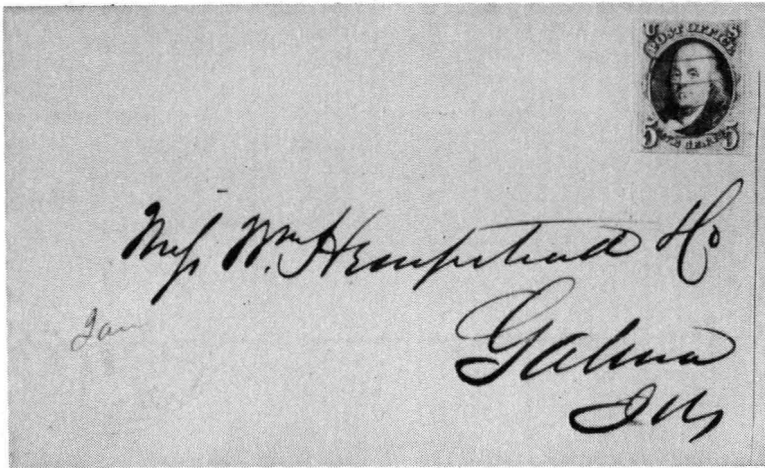 U S
POST OFFICE
5 FIVE CENTS 5
Mess Wm Hempstead & Co
Galena
Ills